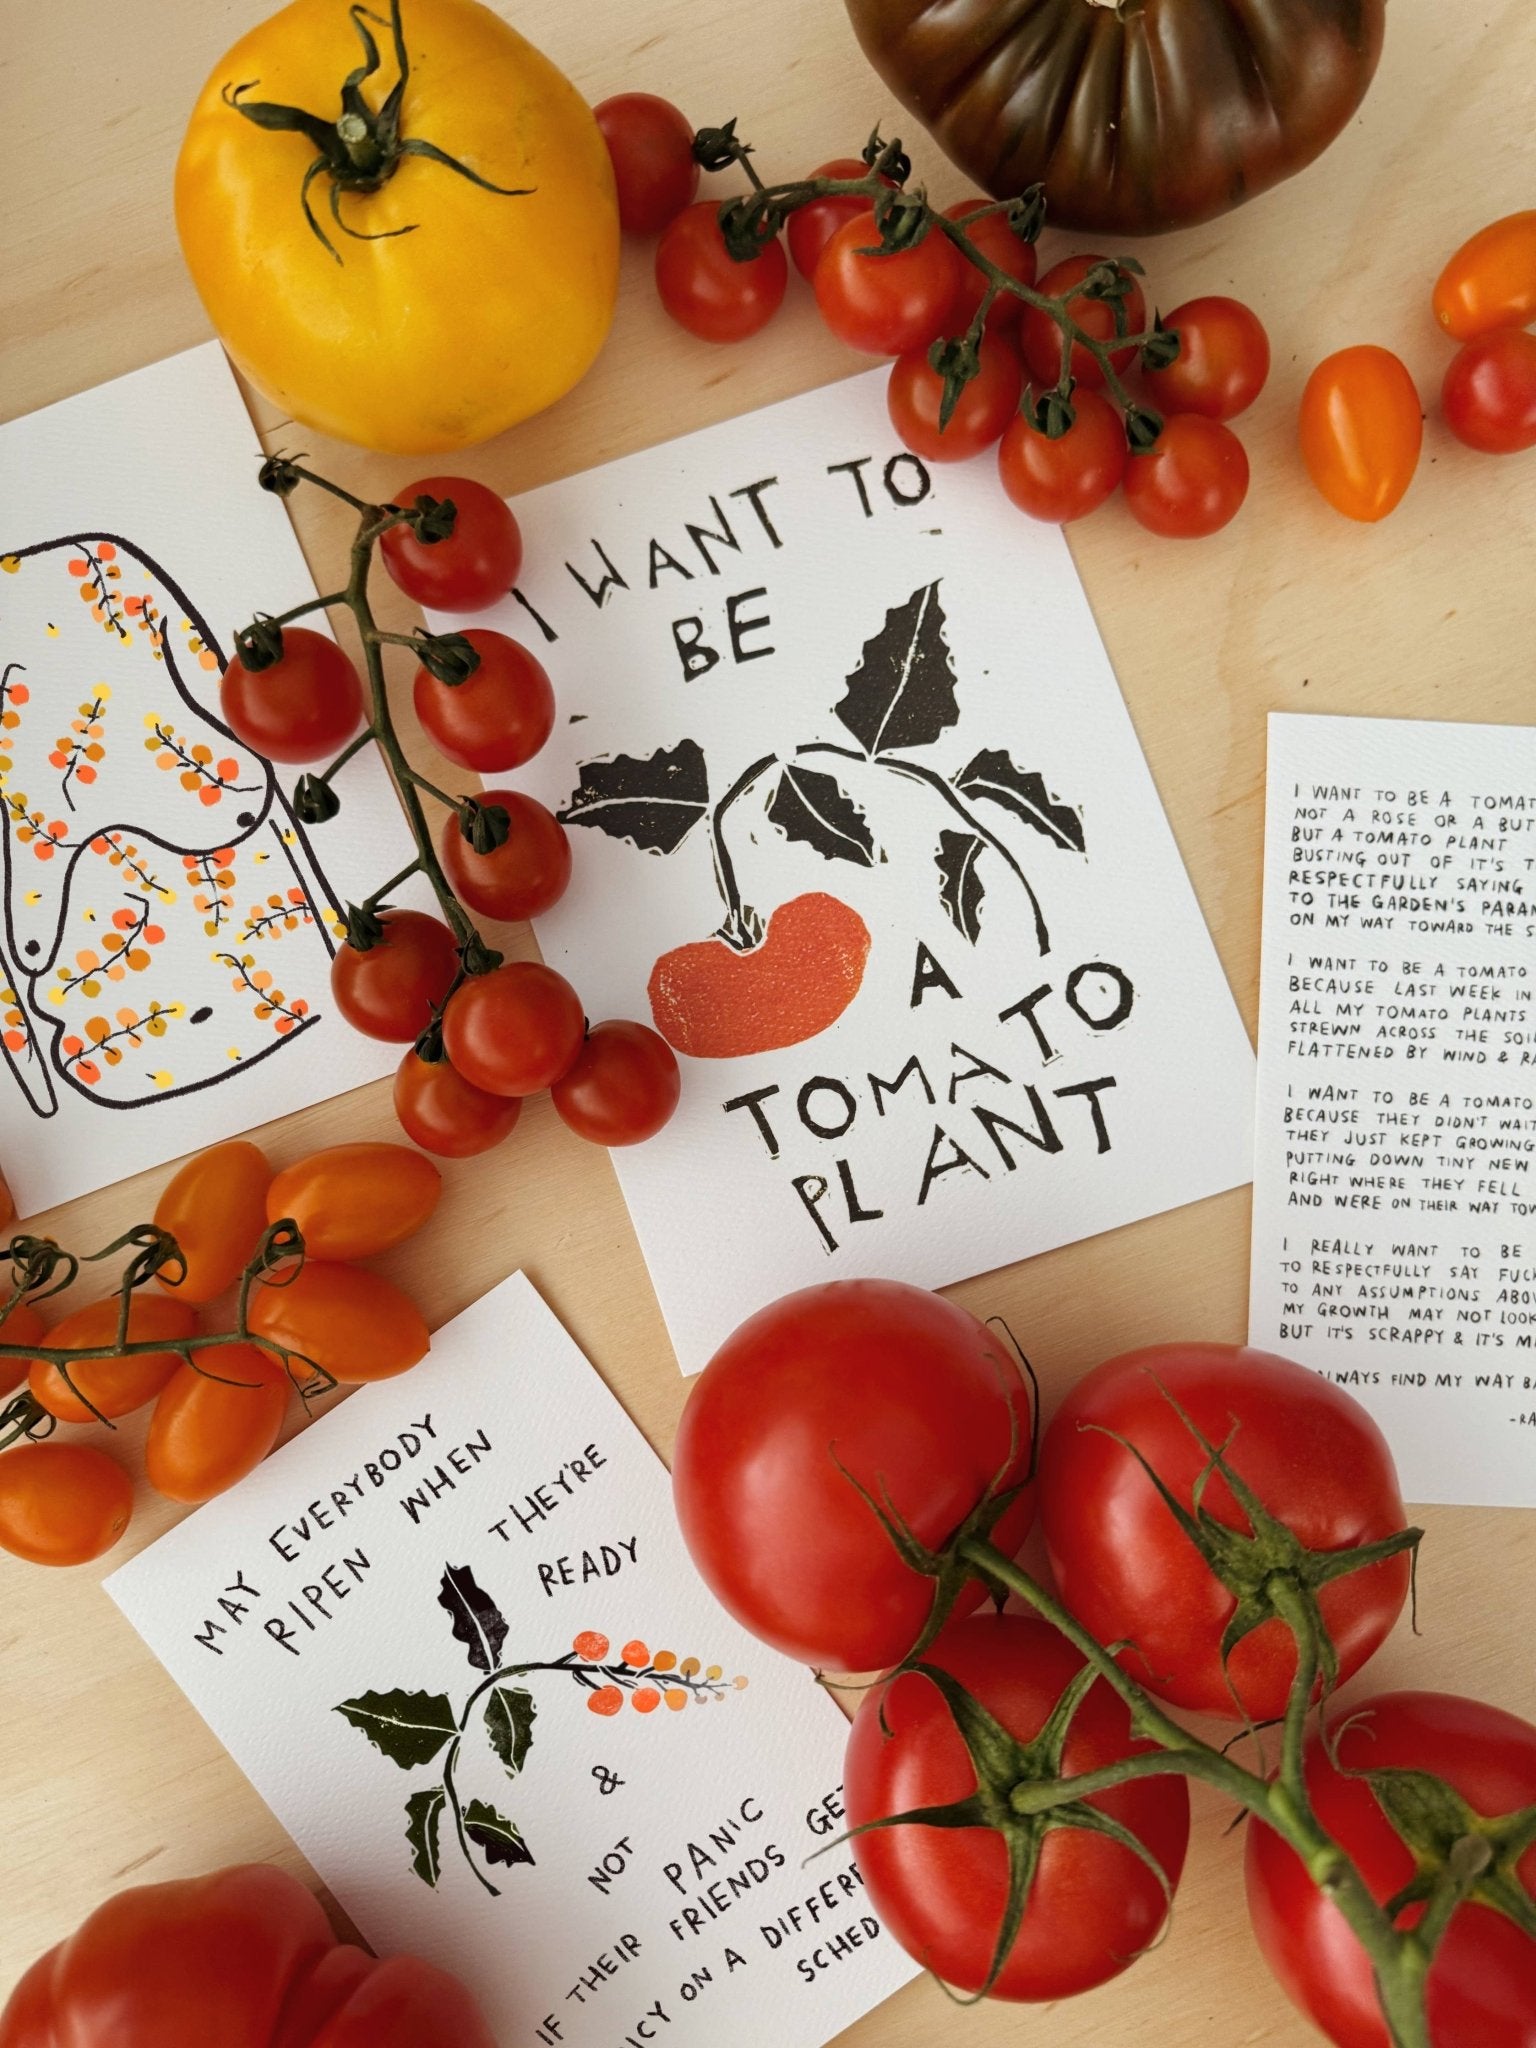 I WANT TO
BE
A
TOMATO
PLANT
I WANT TO BE A
NOT A ROSE OR A
BUT A TOMATO PLANT
BUSTING OUT OF IT'S
RESPECTFULLY SAYING
TO THE GARDEN'S
ON MY WAY TOWARD THE
I WANT TO BE A TOMATO
BECAUSE LAST WEEK IN
ALL MY TOMATO PLANTS
STREWN ACROSS THE
FLATTENED BY WIND &
I WANT TO BE A TOMATO
BECAUSE THEY DIDN'T
THEY JUST KEPT GROWING
PUTTING DOWN TINY NEW
RIGHT WHERE THEY FELL
AND WERE ON THEIR WAY
I REALLY WANT TO BE
TO RESPECTFULLY SAY
TO ANY ASSUMPTIONS
MY GROWTH MAY NOT
BUT IT'S SCRAPPY & IT'S
FIND MY WAY
MAY EVERYBODY
RIPEN WHEN
THEY'RE
READY
&
NOT
PANIC
IF THEIR FRIENDS
ON A